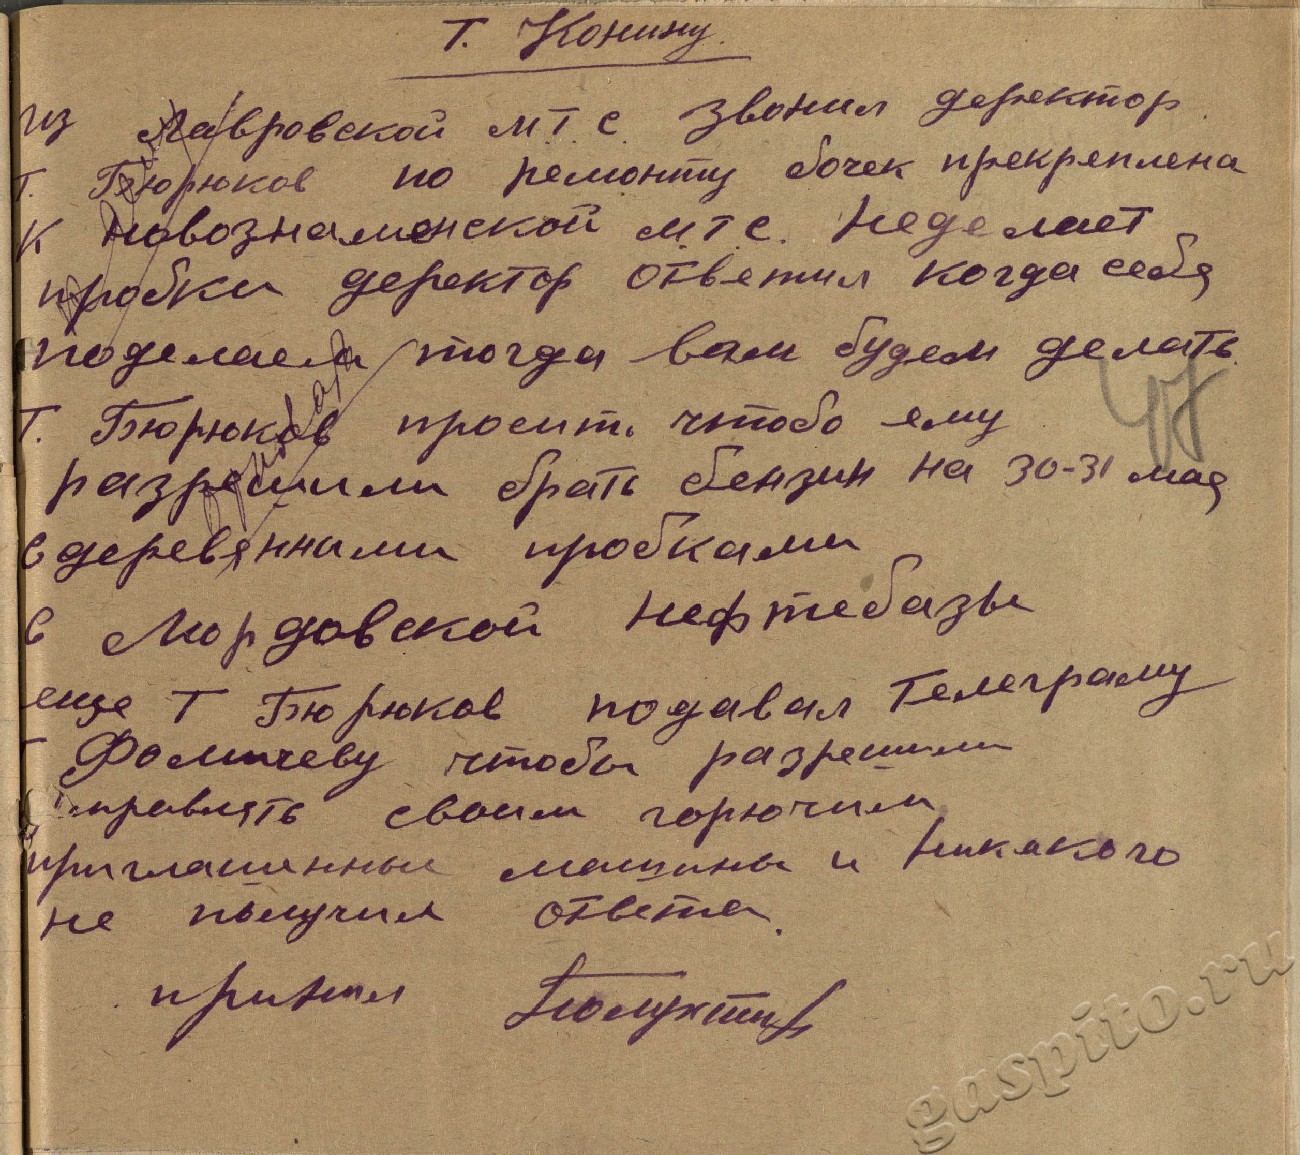 Т. Конину.
из Лавровской М.Т.С. звонил деректор
т. Бюрюков по ремонту бочек прекреплена
к Новознаменской М.Т.С. Неделает
пробки деректор ответил когда себя
поделаем тогда вам будем делать.
Т. Бюрюков просит чтобо ему
разрешили брать бензин на 30-31 мая
с деревянными пробками
с Мордовской нефтебазы
еще Т Бюрюков подавал Телеграму
Фомичеву чтобы разрешили
своим горючим
приглашинные машины и Никакого
не получил ответа.
принял
gaspito.ru